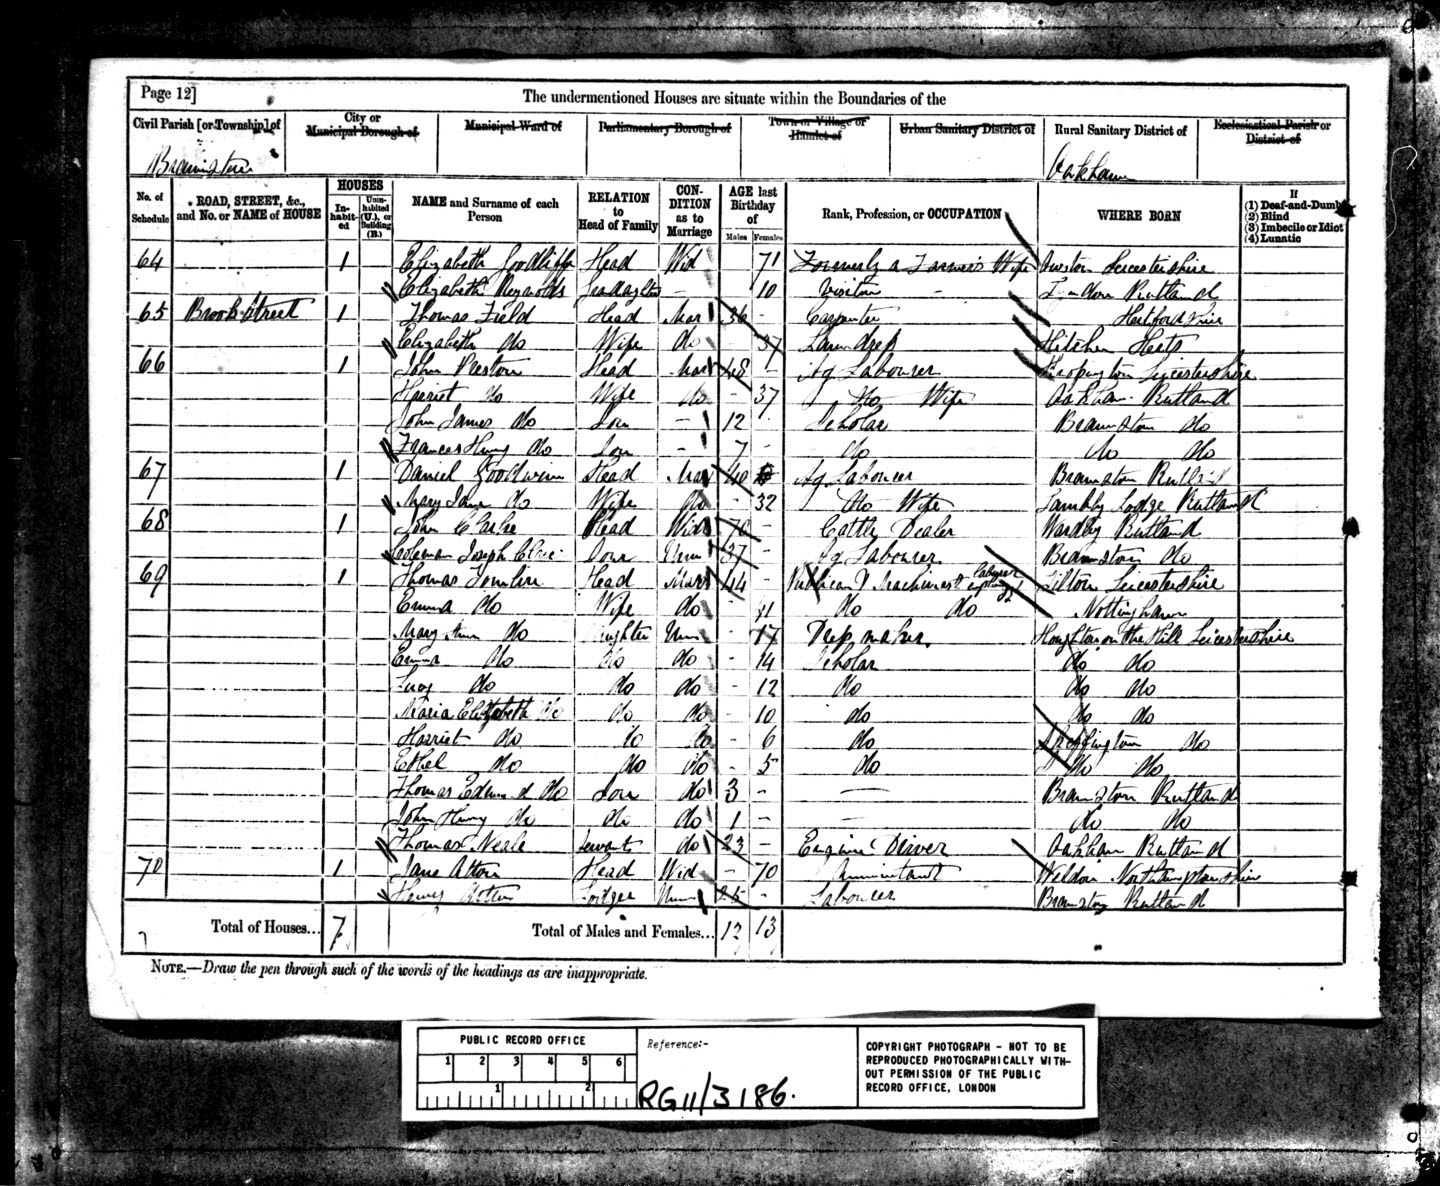 Page 12]
The undermentioned Houses are situate within the Boundaries of the
Civil Parish [or Township] of
City or Municipal Borough of
Municipal Ward of
Parliamentary Borough of
Town or Village or Hamlet of
Urban Sanitary District of
Rural Sanitary District of
Ecclesiastical Parish or District of
Braunston
Oakham
No. of Schedule
ROAD, STREET, &c., and No. or NAME of HOUSE
HOUSES
Inhabited
Uninhabited (U.), or Building (B.)
NAME and Surname of each Person
RELATION to Head of Family
CONDITION as to Marriage
AGE last Birthday of
Males
Females
Rank, Profession, or OCCUPATION
WHERE BORN
If
(1) Deaf-and-Dumb
(2) Blind
(3) Imbecile or Idiot
(4) Lunatic
64 1 Elizabeth Goodliffe Head Wid 71 Formerly a Farmer's Wife Owston Leicestershire
Elizabeth Reynolds - 10 Visitor - Lyndon Rutland
65 Brook Street 1 Thomas Field Head Mar 36 - Carpenter Hertfordshire
Elizabeth Do Wife Do - 37 Laundress Hitchin Herts
66 1 John Preston Head Mar 48 - Ag Labourer Leicestershire
Harriet Do Wife Do - 37 Do Wife Oakham Rutland
John James Do Son - 12 Scholar Braunston Do
Frances Henry Do Son - 7 - Do Do Do
67 1 Daniel Goodwin Head Mar 40 Ag Labourer Braunston Rutland
Mary Jane Do Wife Do - 32 Do Wife Lodge Rutland
68 1 John Clarke Head Widr 70 - Cattle Dealer Wardby Rutland
Coleman Joseph Do Son Unm 37 - Ag Labourer Braunston Do
69 1 Thomas Tomlin Head Mar 44 - Publican & Machinest labourer Tilton Leicestershire
Emma Do Wife Do - 41 Do Do Nottingham
Mary Ann Do Daughter Unm - 17 Dressmaker Houghton on the Hill Leicestershire
Emma Do Do Do - 14 Scholar Do Do
Lucy Do Do Do - 12 Do Do Do
Maria Elizabeth Do Do Do - 10 Do Do Do
Harriet Do Do Do - 6 Do Skeffington Do
Ethel Do Do Do - 5 Do Do Do
Thomas Edmund Do Son Do 3 - — Braunston Rutland
John Henry Do Do Do 1 - — Do Do
Thomas Neale Servant Do 23 - Engine Driver Oakham Rutland
70 1 Jane Atton Head Wid - 70 Annuitant Weldon Northamptonshire
Henry Atton Lodger Unm 25 - Labourer Braunston Rutland
Total of Houses... 7
Total of Males and Females... 12 13
NOTE.—Draw the pen through such of the words of the headings as are inappropriate.
PUBLIC RECORD OFFICE
1 2 3 4 5 6
1 2
Reference:-
RG 11/3186.
COPYRIGHT PHOTOGRAPH - NOT TO BE
REPRODUCED PHOTOGRAPHICALLY WITH-
OUT PERMISSION OF THE PUBLIC
RECORD OFFICE, LONDON